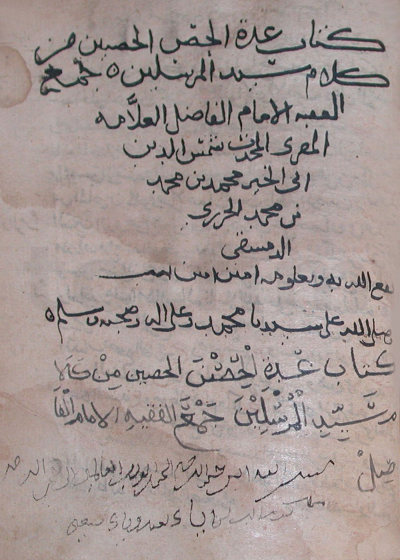 كتاب عدة الحصن الحصين من
كلام سيد المرسلين ٥ جمع
الفقيه الامام الفاضل العلامه
المقرى المحدث شمس الدين
ابى الخير محمد بن محمد
بن محمد الجزرى
الدمشقى
نفع الله به وبعلومه امين امين امين
صلى الله على سيدنا محمد وعلى اله وصحبه وسلم ٥
كتاب عُدة الْحِصْن الحصين مِنْ كلا
م سَيِّدِ الْمُرْسَلِيْنَ جَمْعَ الفقيهِ الامام الفا
ضِلْ
بسم الله الرحمن الرحيم الحمد لله رب العالمين الرحمن الرحيم
اياك نعبد وياك نستعين